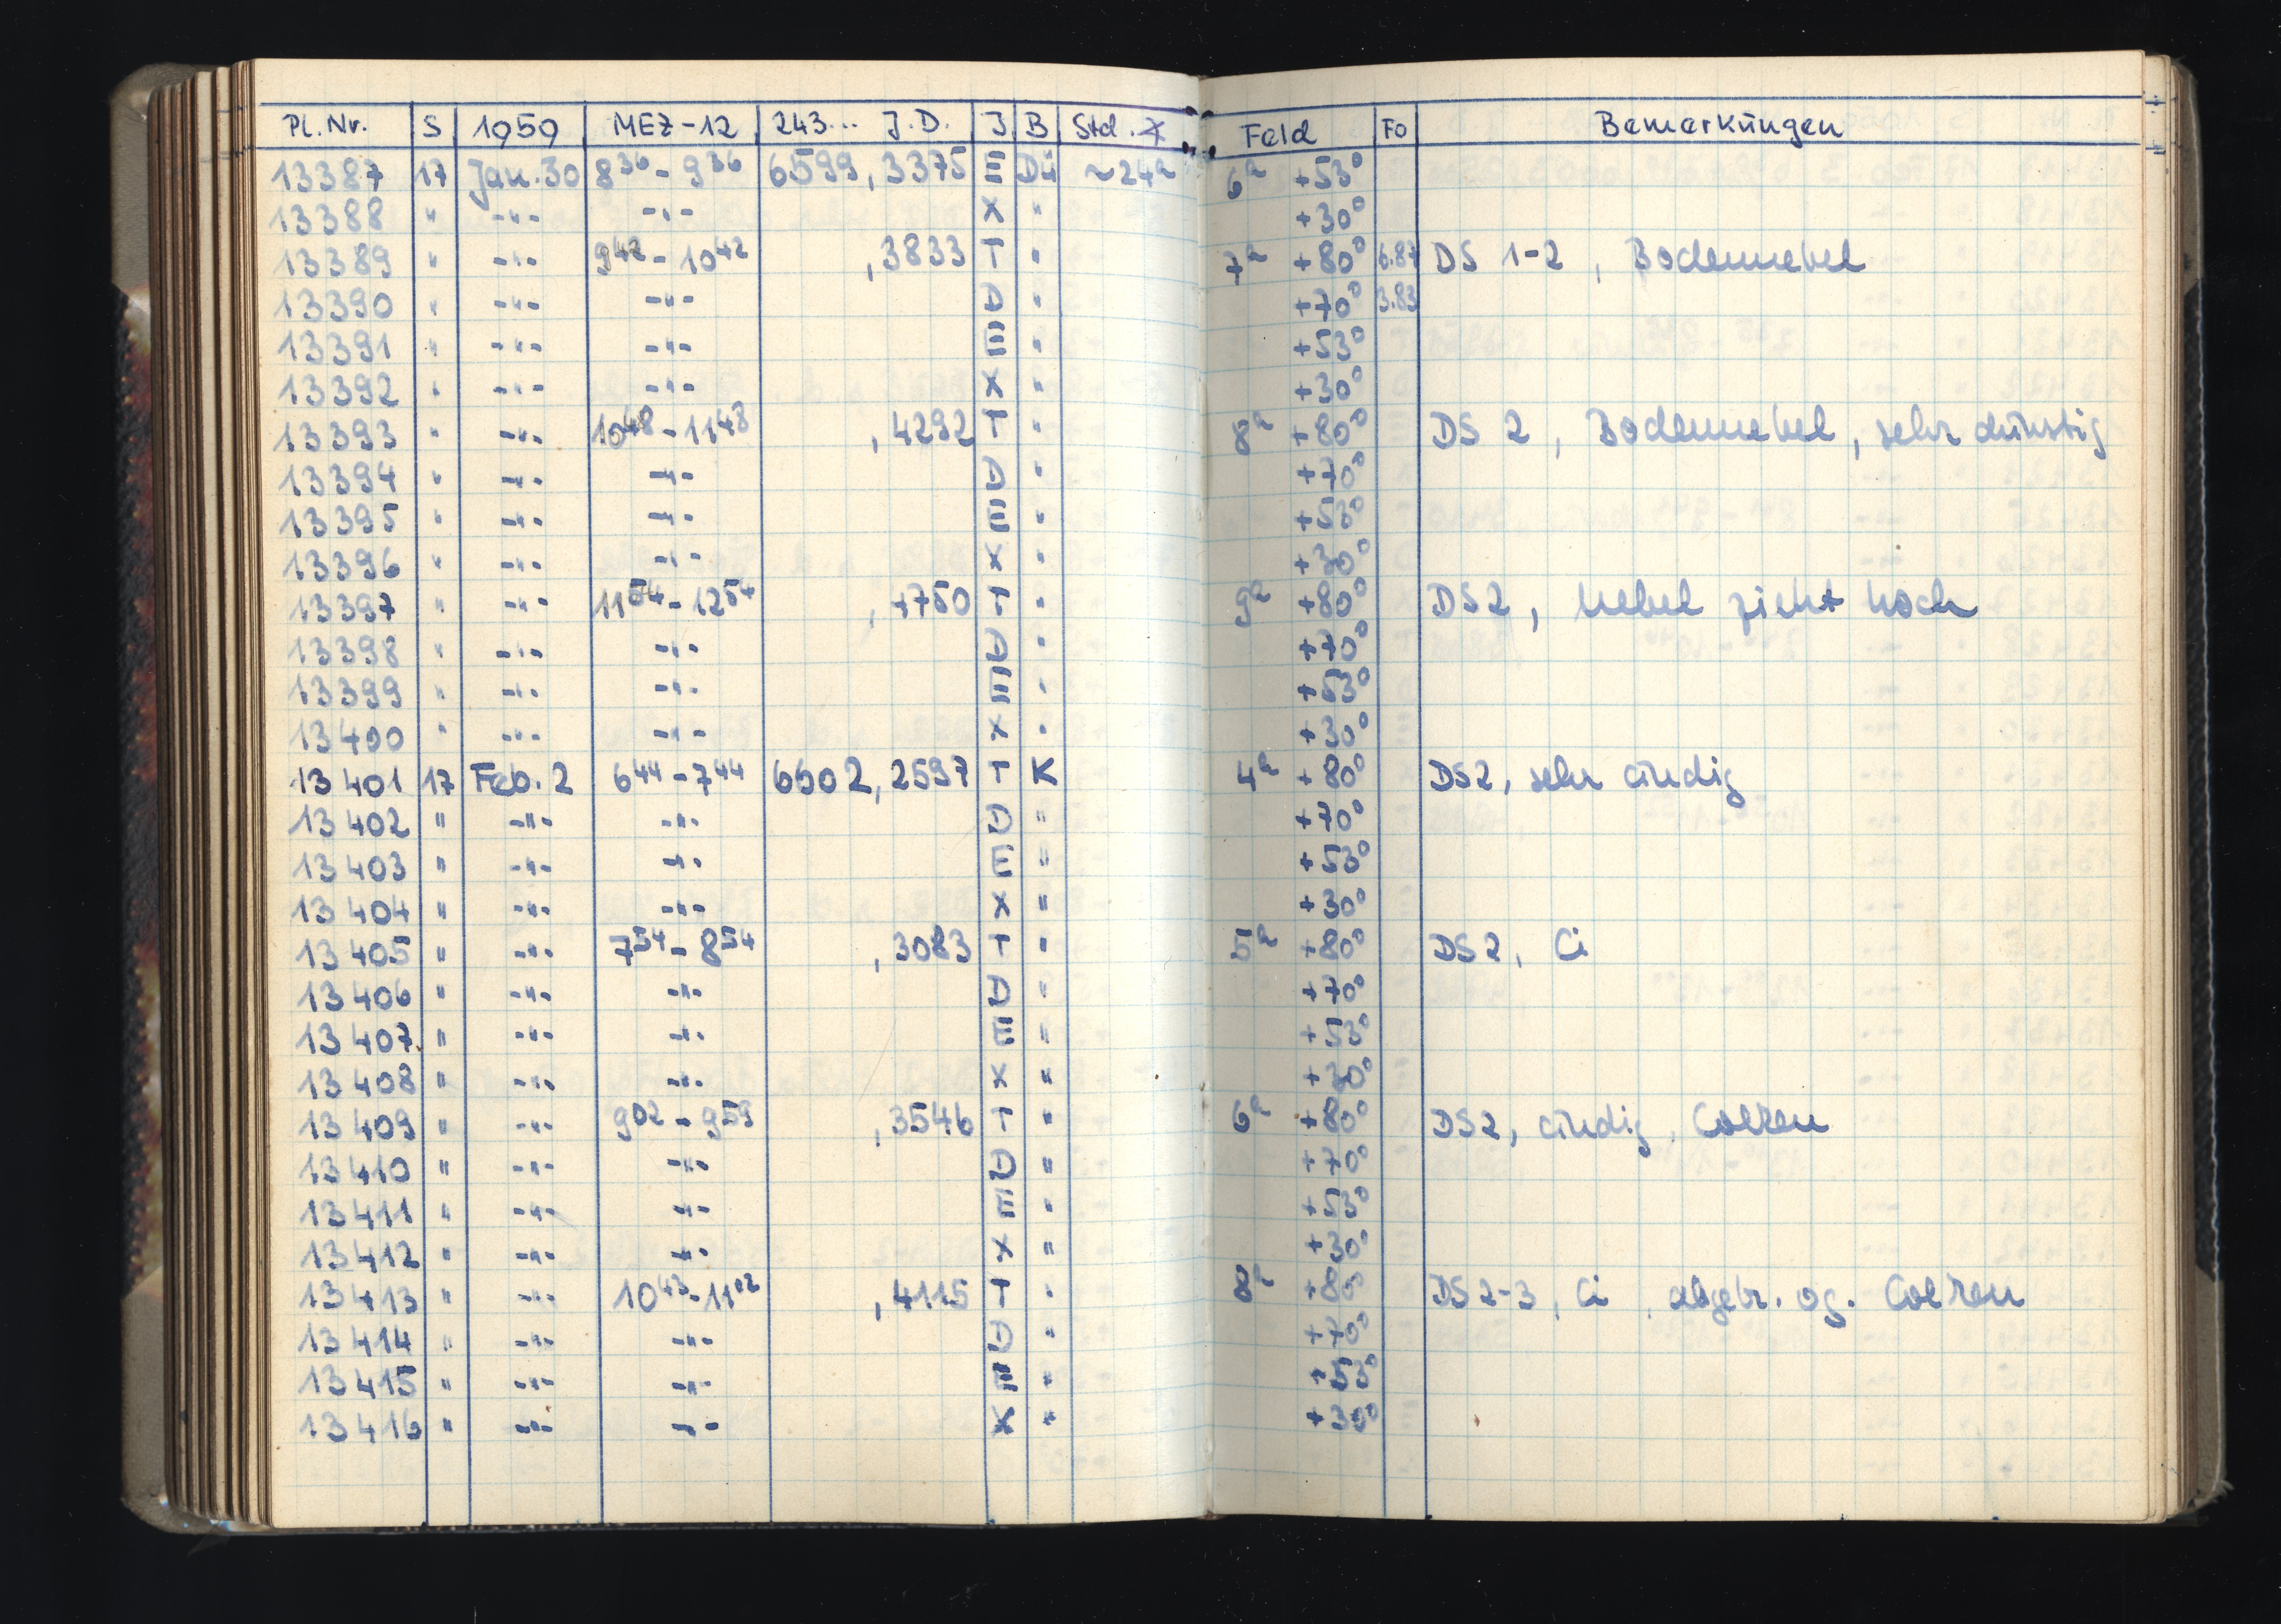 Pl.Nr. S 1959 MEZ-12 243... J.D. J B Std. Feld Fo Bemerkungen
13387 17 Jan.30 8³⁶ - 9³⁶ 6599,3375 E Dü ~24ᵃ 6ʰ +53°
13388 " -"- -"- X " +30°
13389 " -"- 9⁴² - 10⁴² ,3833 T " 7ʰ +80° 6.87 DS 1-2, Bodennebel
13390 " -"- -"- D " +70° 3.83
13391 " -"- -"- E " +53°
13392 " -"- -"- X " +30°
13393 " -"- 10⁴⁸ - 11⁴⁸ ,4292 T " 8ʰ +80° DS 2, Bodennebel, sehr dunstig
13394 " -"- -"- D " +70°
13395 " -"- -"- E " +53°
13396 " -"- -"- X " +30°
13397 " -"- 11⁵⁴ - 12⁵⁴ ,4750 T " 9ʰ +80° DS 2, Nebel zieht hoch
13398 " -"- -"- D " +70°
13399 " -"- -"- E " +53°
13400 " -"- -"- X " +30°
13401 17 Feb. 2 6⁴⁴ - 7⁴⁴ 6602,2597 T K 4ʰ +80° DS 2, sehr windig
13402 " -"- -"- D " +70°
13403 " -"- -"- E " +53°
13404 " -"- -"- X " +30°
13405 " -"- 7⁵⁴ - 8⁵⁴ ,3083 T " 5ʰ +80° DS 2, Ci
13406 " -"- -"- D " +70°
13407 " -"- -"- E " +53°
13408 " -"- -"- X " +30°
13409 " -"- 9⁰² - 9⁵⁹ ,3546 T " 6ʰ +80° DS 2, windig, Wolken
13410 " -"- -"- D " +70°
13411 " -"- -"- E " +53°
13412 " -"- -"- X " +30°
13413 " -"- 10⁴³ - 11⁰² ,4115 T " 8ʰ +80° DS 2-3, Ci, abgebr. wg. Wolken
13414 " -"- -"- D " +70°
13415 " -"- -"- E " +53°
13416 " -"- -"- X " +30°